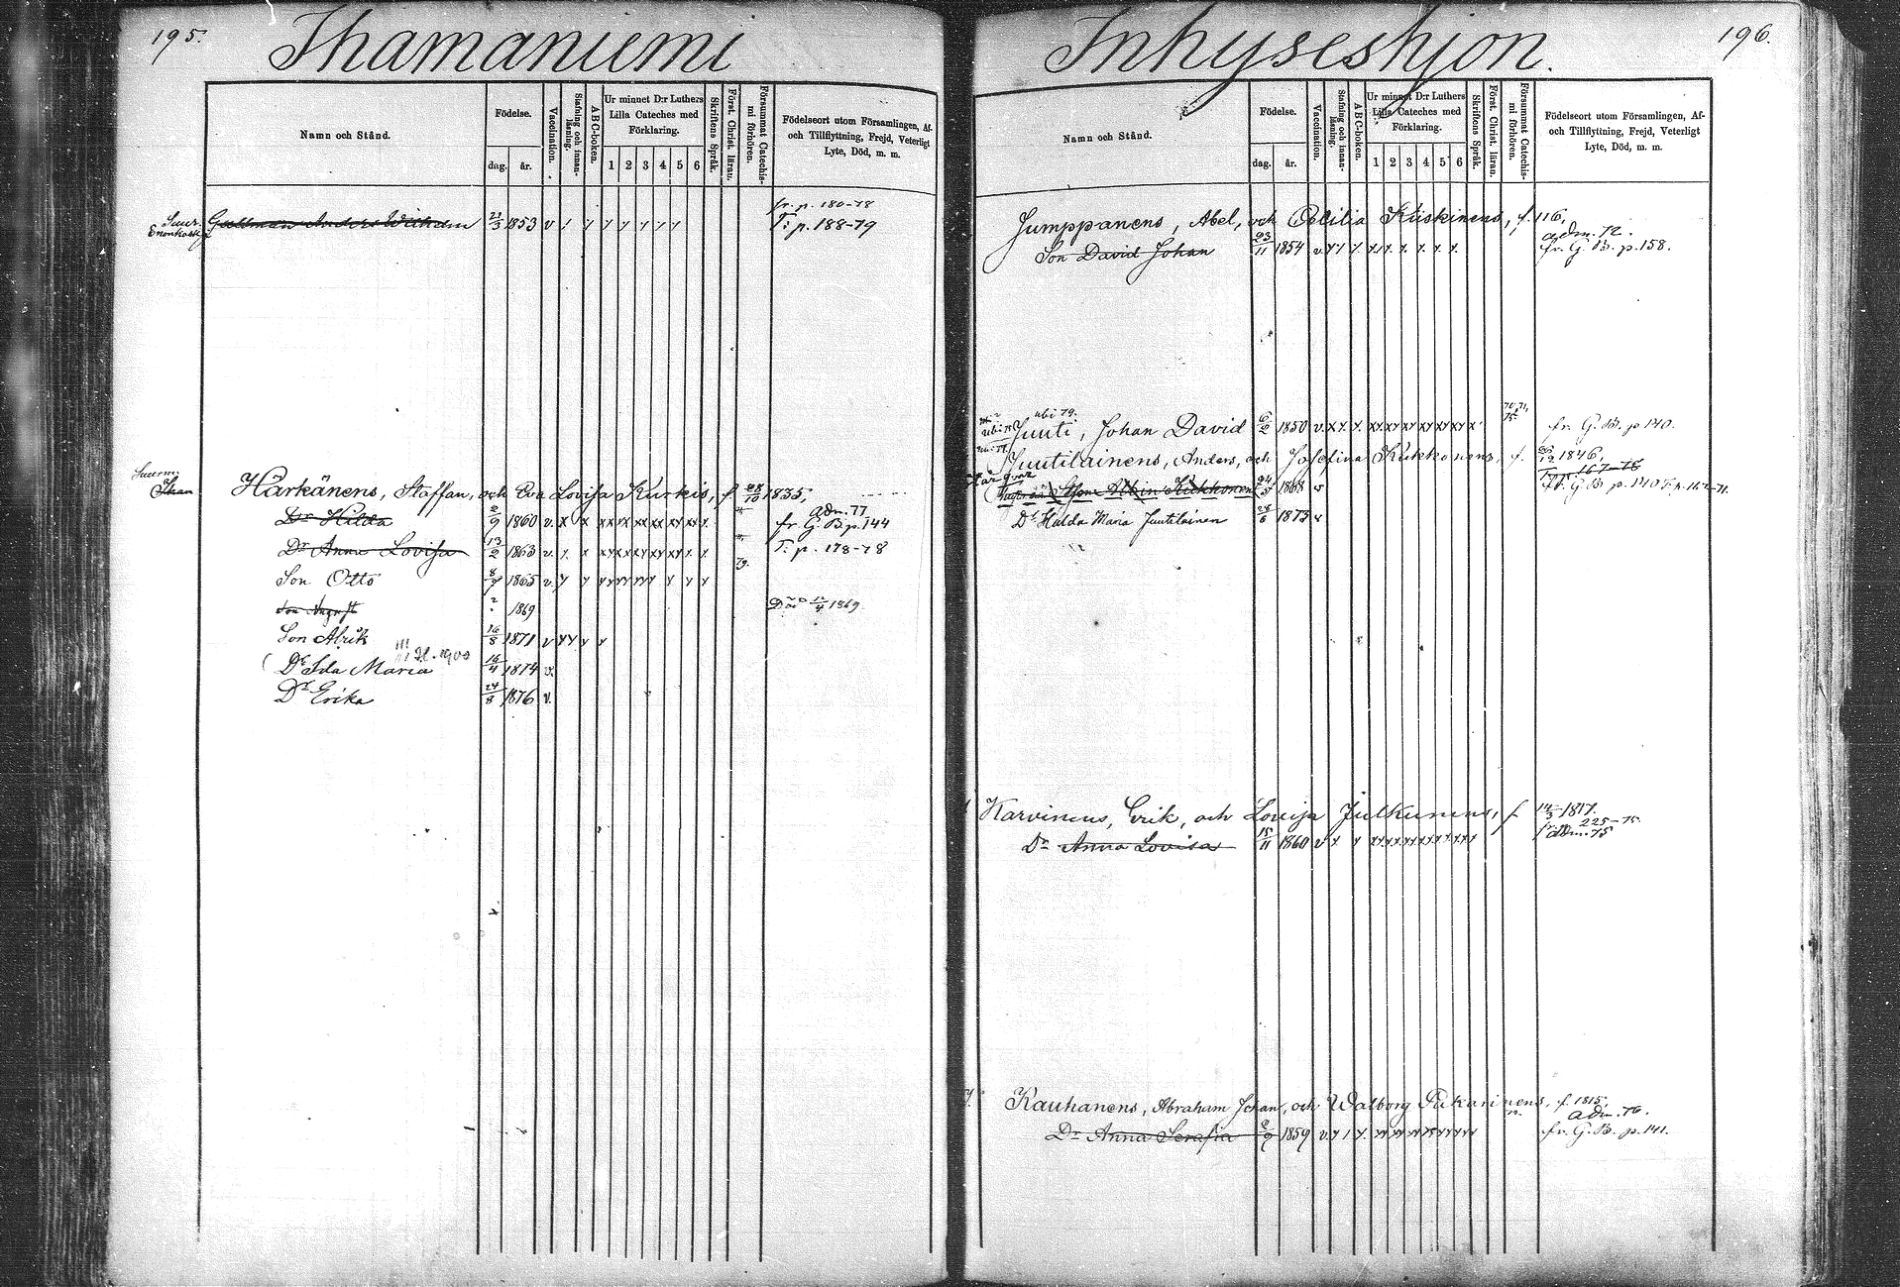 195.
Ihamaniemi
Namn och Stånd.
Födelse.
dag.
år.
Vaccination.
Stafning och innan-läsning.
ABC-boken.
Ur minnet D:r Luthers
Lilla Cateches med
Förklaring.
1 2 3 4 5 6
Skriftens Språk.
Först. Christ. läran.
Försummat Catechis-mi förhören.
Födelseort utom Församlingen, Af-
och Tillflyttning, Frejd, Veterligt
Lyte, Död, m. m.
fr. p. 180-78
Gullman Anders Wilhelm 21/3 1853 v
T. p. 188-79
Härkänens, Staffan, och Eva Lovisa Kurkis, f. 28/10 1835,
adm. 77
Dr Hilda 2/9 1860 v. fr. G. B. p. 144
Dr Anna Lovisa 13/2 1863 v. T. p. 178-78
79.
Son Otto 1865 v.
Son August 1869 Död 12/4 1869.
Son Alrik 16/8 1871 v
Dr Ida Maria 16/4 1874 v.
Dr Erika 24/8 1876 v.
196.
Inhyseshjon.
Namn och Stånd.
Födelse.
dag.
år.
Vaccination.
Stafning och innan-läsning.
ABC-boken.
Ur minnet D:r Luthers
Lilla Cateches med
Förklaring.
1 2 3 4 5 6
Skriftens Språk.
Först. Christ. läran.
Försummat Catechis-mi förhören.
Födelseort utom Församlingen, Af-
och Tillflyttning, Frejd, Veterligt
Lyte, Död, m. m.
Jumppanens, Abel, och Cecilia Kiiskinens, f. 116,
adm. 72.
Son David Johan 23/11 1854 v. fr. G. B. p. 158.
ubi 79.
Juuti, Johan David 6/2 1850 v. fr. G. B. p 140.
Juutilainens, Anders, och Josefina Kukkonens, f. 1846,
T. p. 167-78
Son Albin Kukkonen 1868 v fr. G. B. p. 140
Dr Hulda Maria Juutilainen 1873 v
Karvinens, Erik, och Lovisa Julkunens, f. 14/3 1817.
225-75
Dr Anna Lovisa 15/11 1860 v adm. 75
Kauhanens, Abraham Johan, och Walborg Pukarinens, f. 1815,
adm. 76.
Dr Anna Serafia 2/9 1859 v. fr. G. B. p. 141.